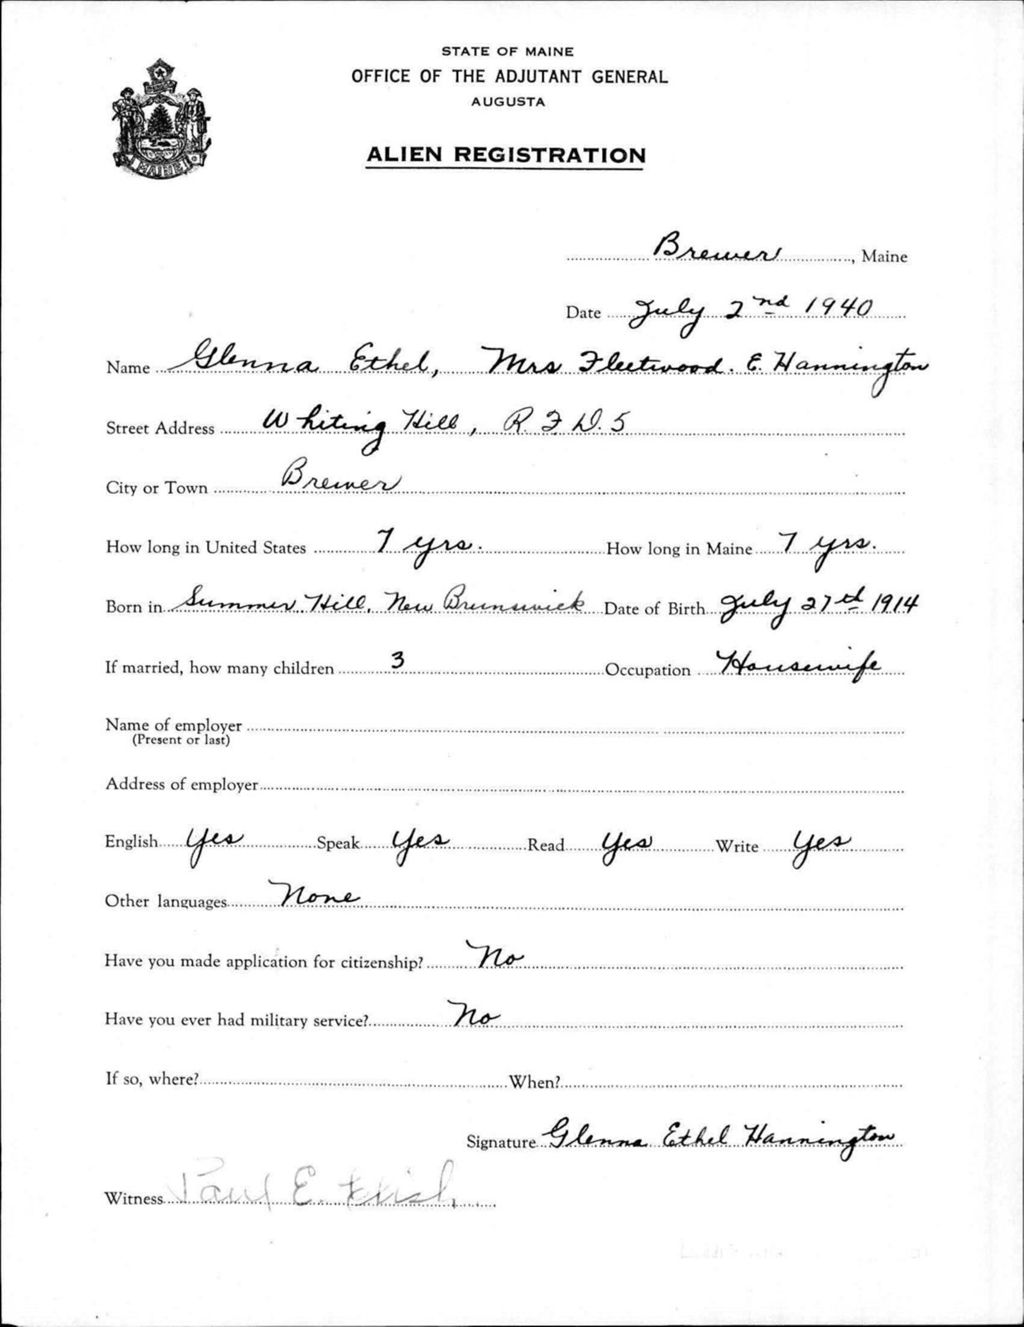 STATE OF MAINE
OFFICE OF THE ADJUTANT GENERAL
AUGUSTA
ALIEN REGISTRATION
MAINE
Brewer, Maine
Date July 2nd 1940
Name Glenna Ethel, Mrs Fleetwood. E. Hannington
Street Address Whiting Hill, R.F.D. 5
City or Town Brewer
How long in United States 7 yrs. How long in Maine 7 yrs.
Born in Summer Hill, New Brunswick Date of Birth July 27th 1914
If married, how many children 3 Occupation Housewife
Name of employer
(Present or last)
Address of employer
English Yes Speak Yes Read Yes Write Yes
Other languages None
Have you made application for citizenship? No
Have you ever had military service? No
If so, where? When?
Signature Glenna Ethel Hannington
Witness Paul E.